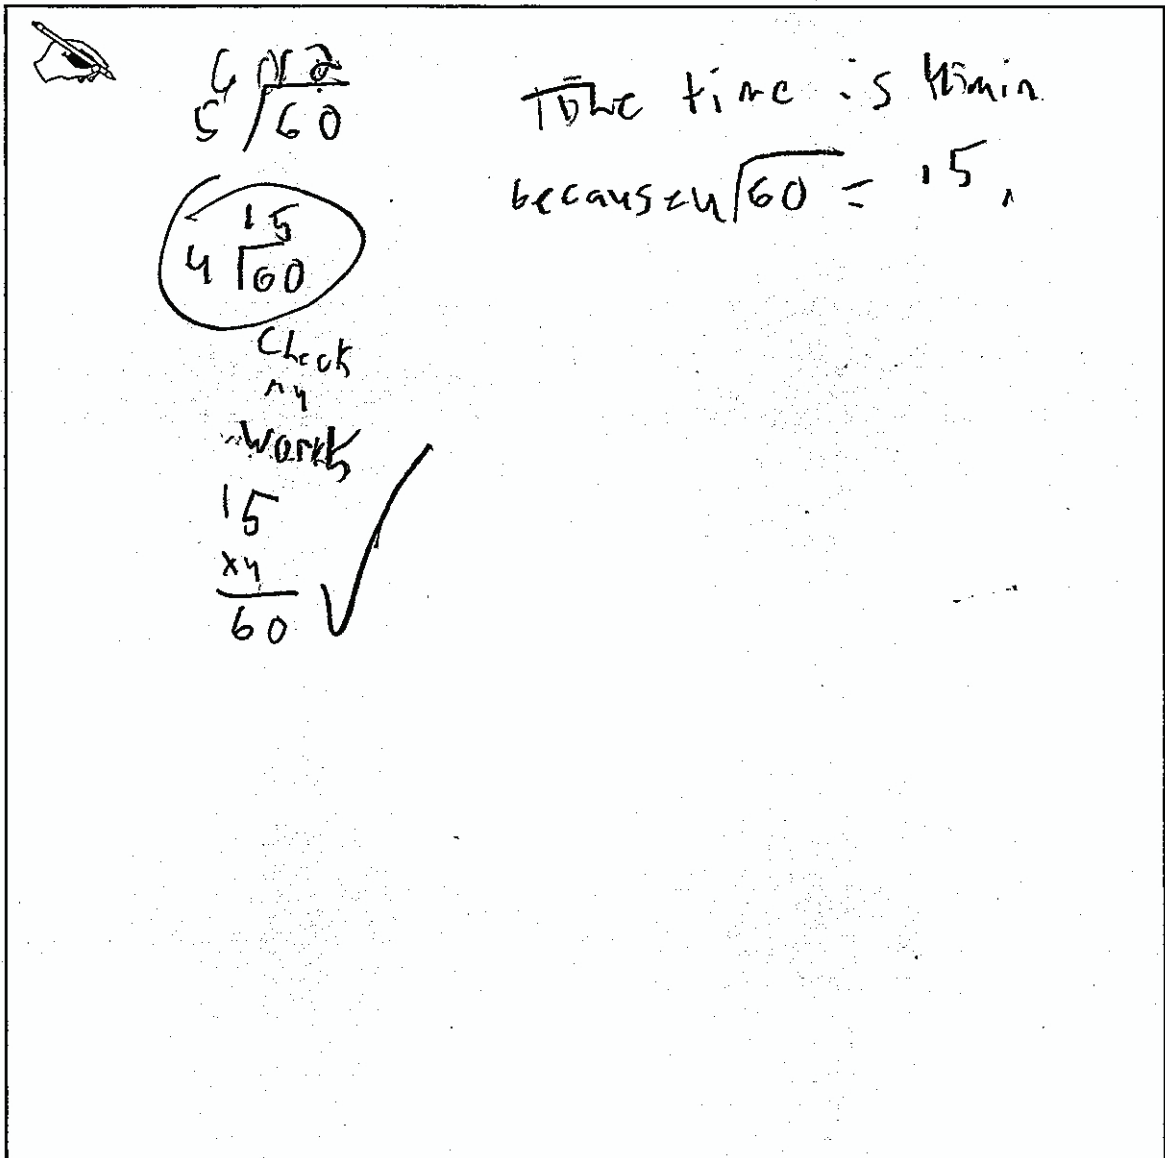 12
5 √60
15
4 √60
Check
my
work
15
x4
60
The time is 4min
because 4√60 = 15.